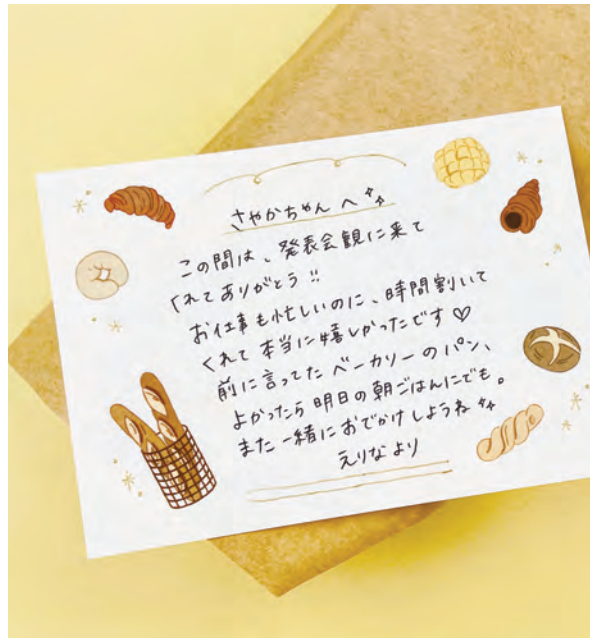 さやかちゃんへ
この間は、発表会観に来て
くれてありがとう!!
お仕事も忙しいのに、時間割いて
くれて本当に嬉しかったです♡
前に言ってたベーカリーのパン、
よかったら明日の朝ごはんにでも。
また一緒におでかけしようね
えりなより